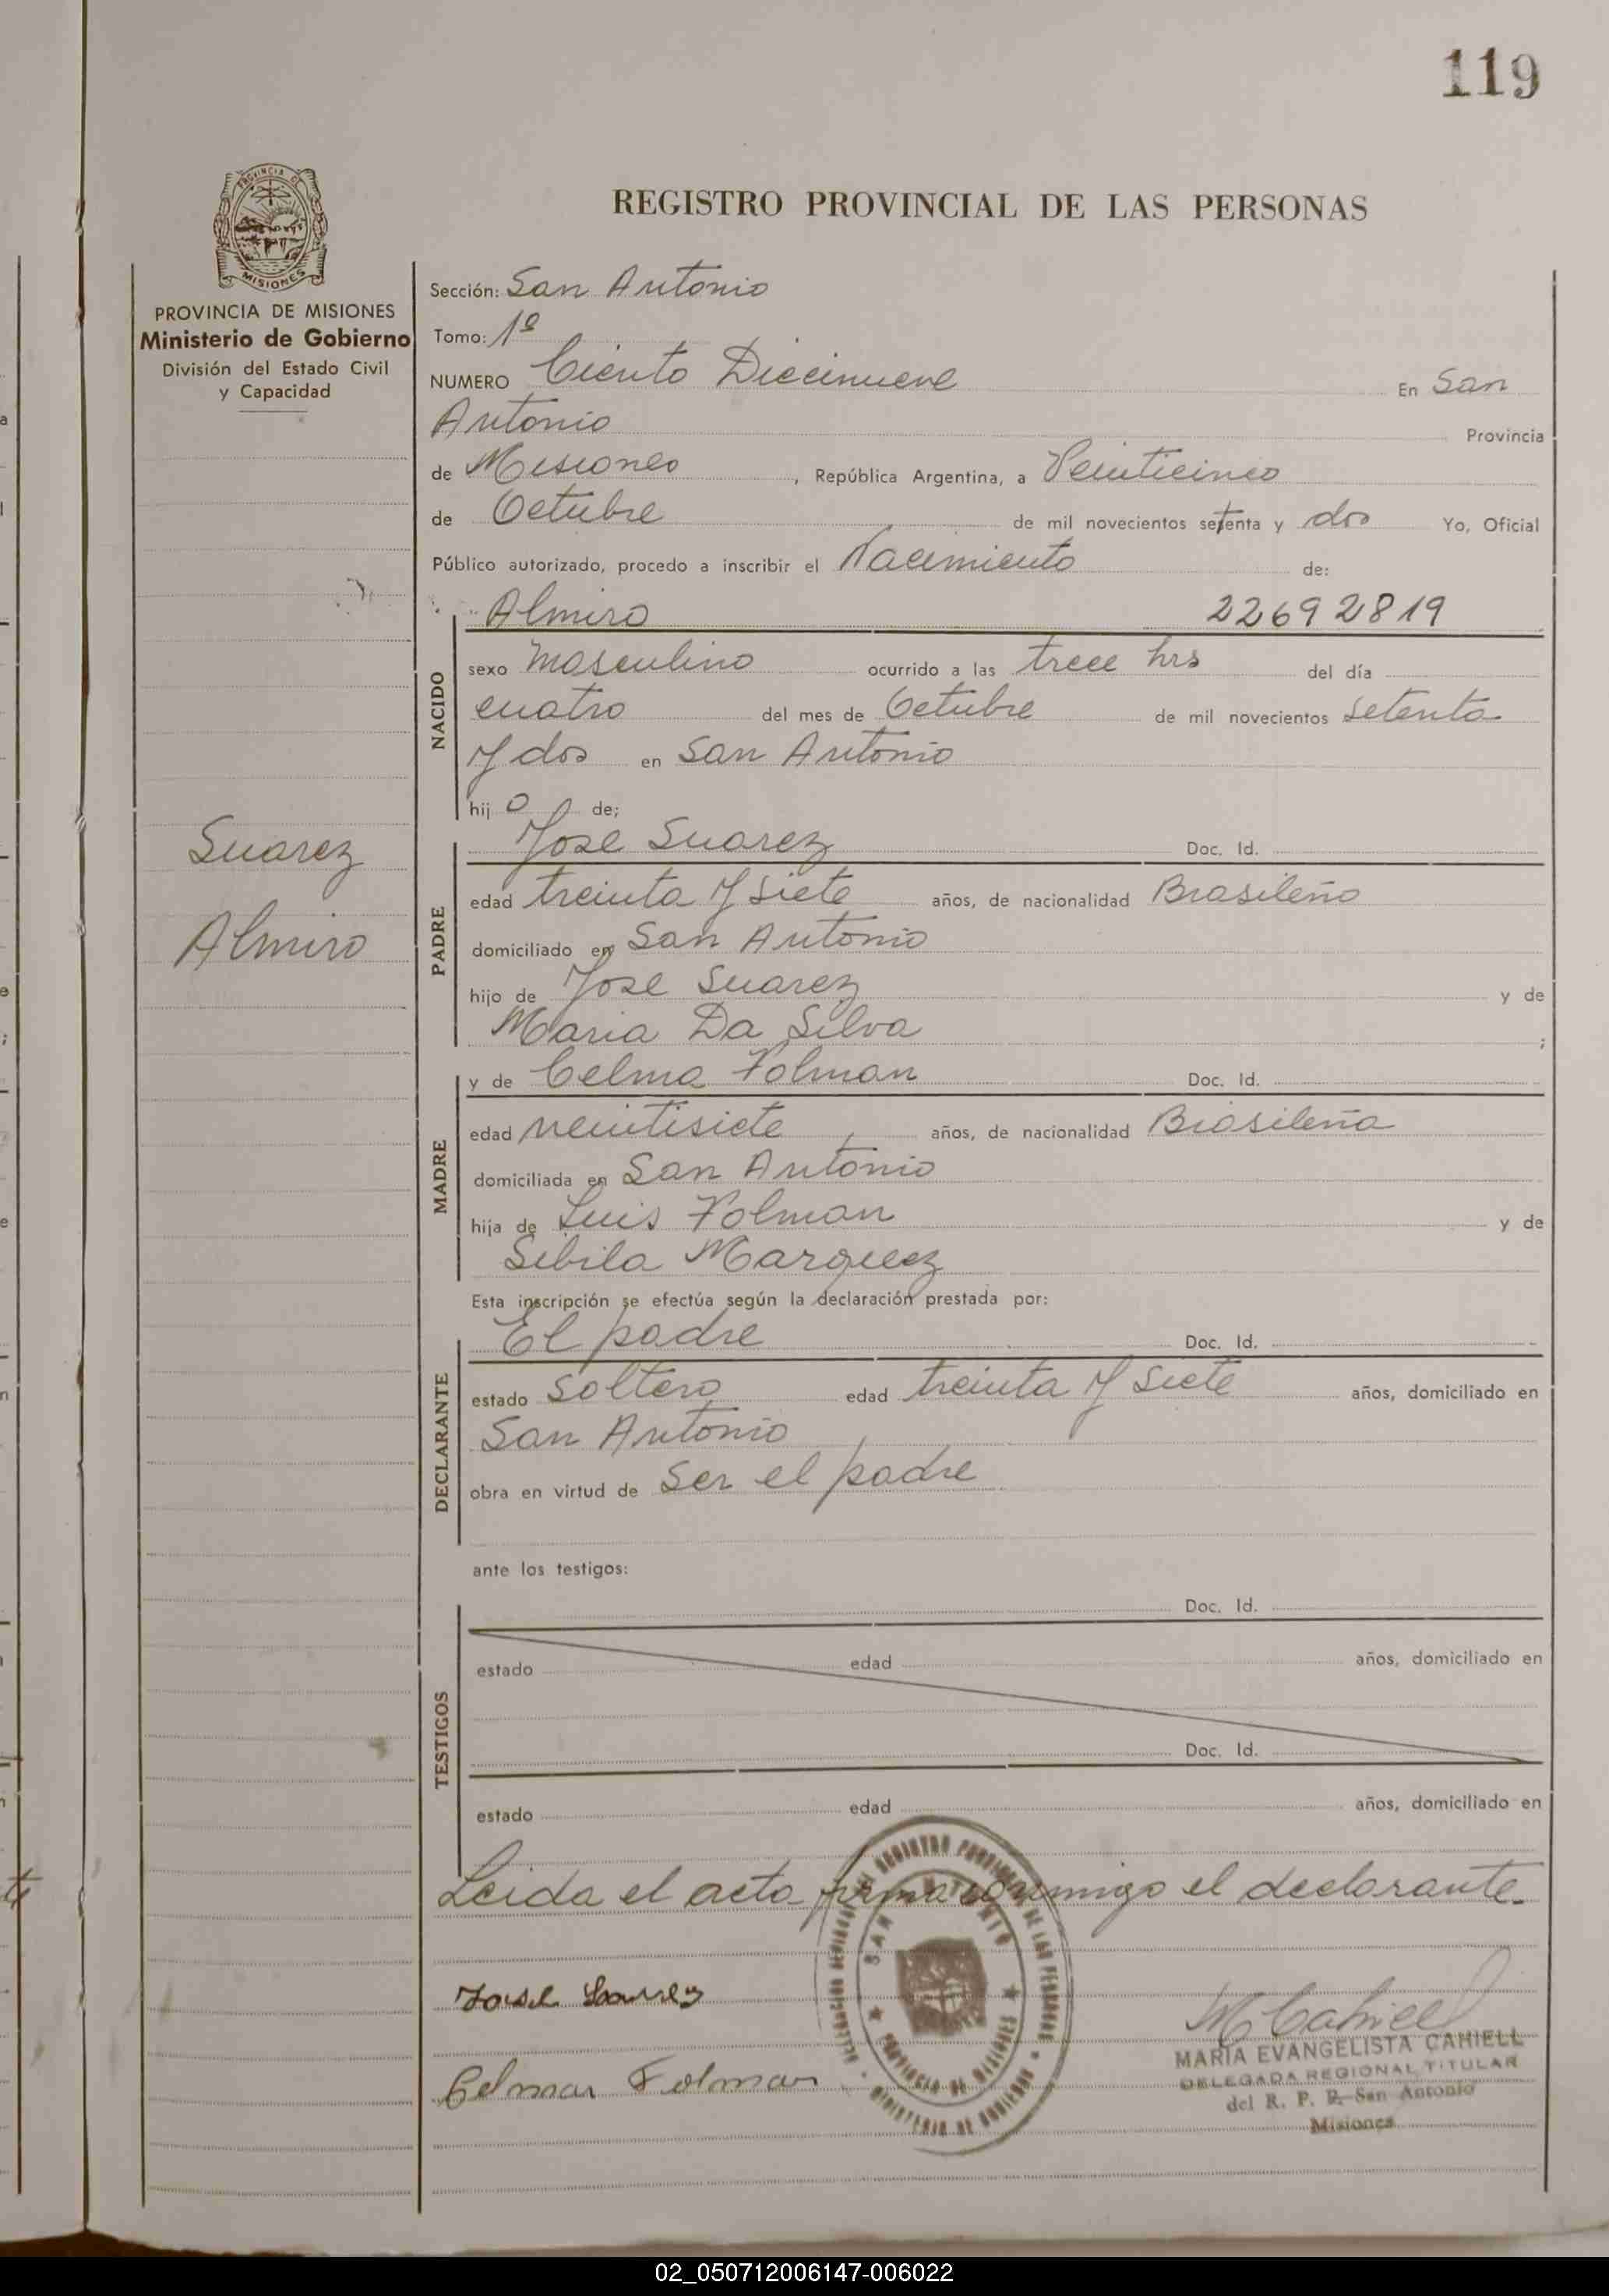 119
PROVINCIA DE
MISIONES
PROVINCIA DE MISIONES
Ministerio de Gobierno
División del Estado Civil
y Capacidad
Suarez
Almiro
REGISTRO PROVINCIAL DE LAS PERSONAS
Sección: San Antonio
Tomo: 1º
NUMERO Ciento Diecinueve En San
Antonio Provincia
de Misiones, República Argentina, a Veinticinco
de Octubre de mil novecientos setenta y dos Yo, Oficial
Público autorizado, procedo a inscribir el Nacimiento de:
Almiro 22692819
NACIDO
sexo Masculino ocurrido a las trece hrs del día
cuatro del mes de Octubre de mil novecientos setenta
y dos en San Antonio
hijo de;
PADRE
Jose Suarez Doc. Id.
edad treinta y siete años, de nacionalidad Brasileño
domiciliado en San Antonio
hijo de Jose Suarez y de
Maria Da Silva ;
MADRE
y de Celma Folman Doc. Id.
edad veintisiete años, de nacionalidad Brasileña
domiciliada en San Antonio
hija de Luis Folman y de
Sibila Marquez
Esta inscripción se efectúa según la declaración prestada por:
DECLARANTE
El padre Doc. Id.
estado soltero edad treinta y siete años, domiciliado en
San Antonio
obra en virtud de ser el padre
ante los testigos:
TESTIGOS
Doc. Id.
estado edad años, domiciliado en
Doc. Id.
estado edad años, domiciliado en
Leida el acta firma conmigo el declarante.
SAN ANTONIO
PROVINCIA DE MISIONES
MINISTERIO DE GOBIERNO
Celmar Folman
M Cahiell
MARIA EVANGELISTA CAHIELL
DELEGADA REGIONAL TITULAR
del R. P. P. San Antonio
Misiones
02_050712006147-006022